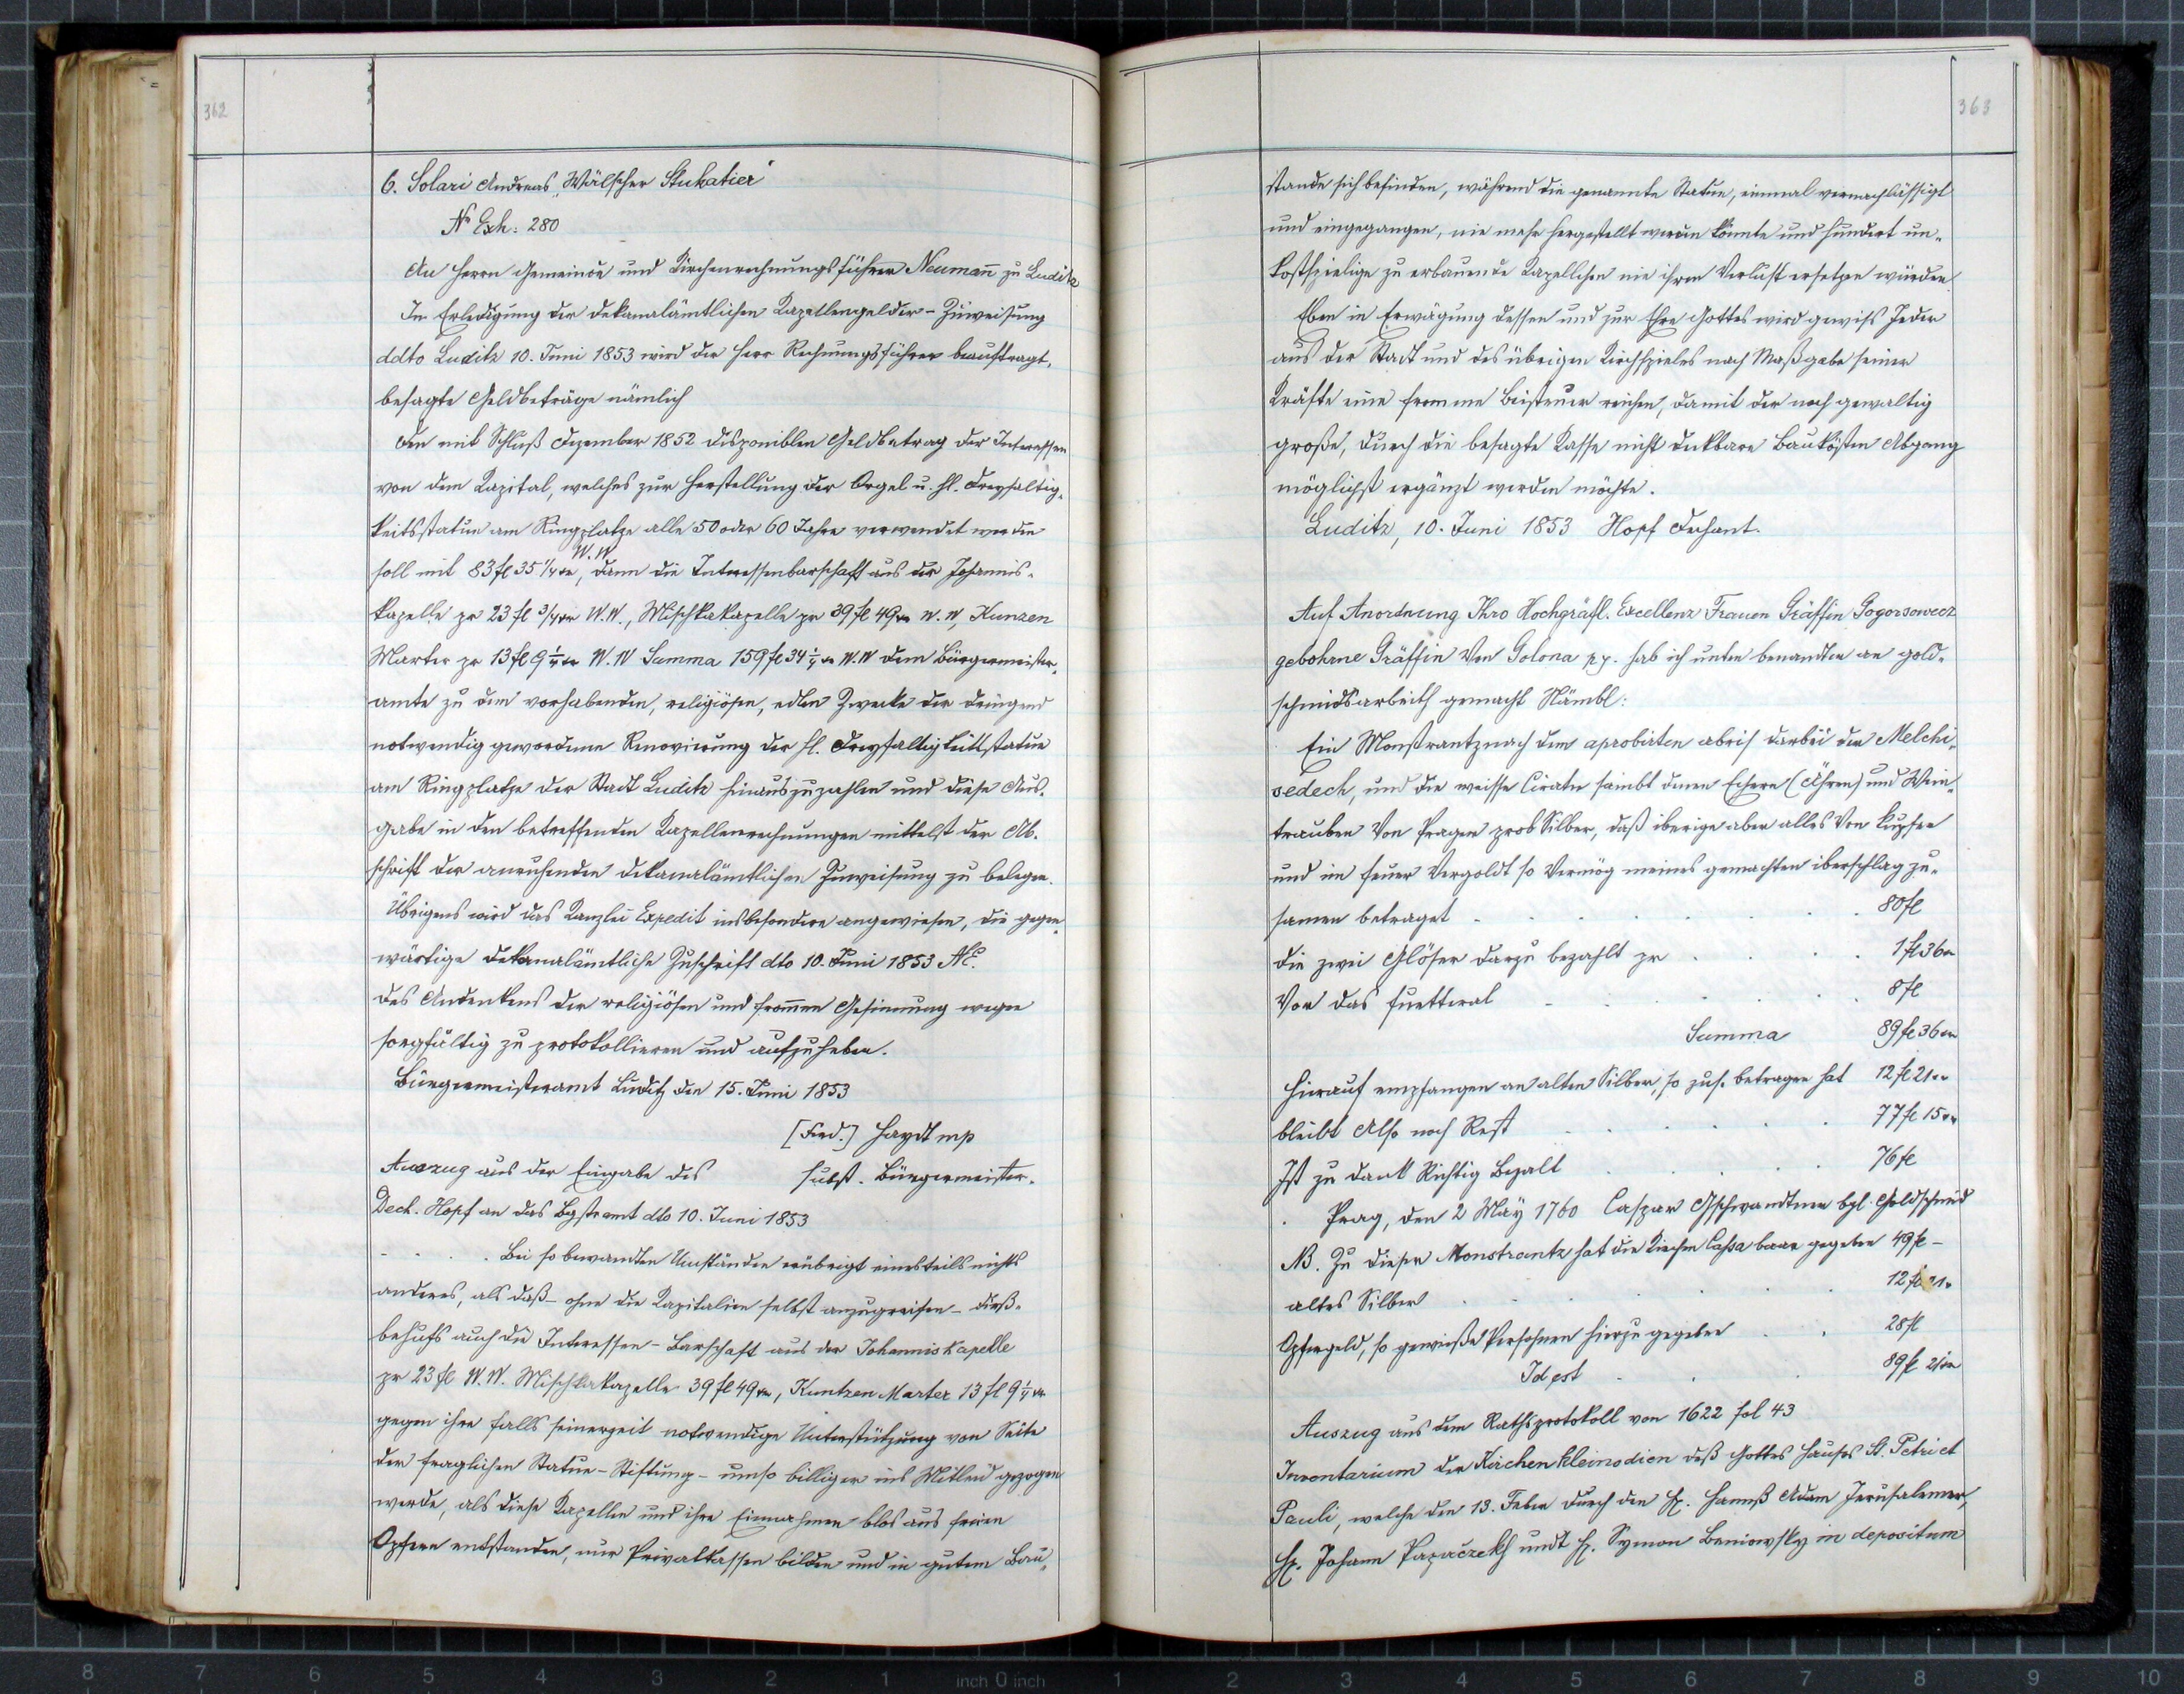 362
6. Solari Andreas, "Wälscher Stukatier"
N° Exh: 280
An Herrn Gemeinde und Kirchenrechnungsführer Neumañ zu Luditz
In Erledigung der dekanalämtlichen Kapellengelder-Zuweisung
ddto Luditz 10. Juni 1853 wird der Herr Rechnungsführer beauftragt,
besagte Geldbeträge nämlich
den mit Schluß Dezember 1852 disponiblen Geldbetrag der Interessen
von dem Kapital, welches zur Herstellung der Orgel u. hl. Dreyfaltig-
keitsstatue am Ringplatze alle 50 oder 60 Jahre verwendet werden
soll mit 83 fl 35 1/4 kr W.W, dann die Interessenbarschaft aus der Johannis-
kapelle pr 23 fl 3/4 kr W.W., Mischkakapelle pr 39 fl 49 kr W.W, Kunzen
Marter pr 13 fl 9 1/4 kr W.W Summa 159 fl 34 1/4 kr W.W dem Bürgermeister-
amte zu dem vorhabenden, religiösen, edlen Zwecke der dringend
notwendig gewordenen Renovirung der hl. Dreyfaltigkeitsstatue
am Ringplatze der Stadt Luditz hinauszuzahlen und diese Aus-
gabe in den betreffenden Kapellenrechnungen mittelst der Ab-
schrift der anruhenden dekanalämtlichen Zuweisung zu belegen.
Übrigens wird das Kanzlei Expedit insbesondere angewiesen, die gegen-
wärtige dekanalämtliche Zuschrift dto 10. Juni 1853 NE.
des Andenkens der religiösen und from̃en Gesinnung wegen
sorgfältig zu protokollieren und aufzuheben.
Bürgermeisteramt Luditz den 15. Juni 1853
[Ferd.] Haydt mp
Auszug aus der Eingabe des subst. Bürgermeister.
Dech. Hopf an das Bgstramt dto 10. Juni 1853
- . . . Bei so bewandten Umständen erübrigt einesteils nichts
anderes, als daß - ohne die Kapitalien selbst anzugreifen - dieß-
behufs auch die Interessen-Barschaft aus der Johanniskapelle
pr 23 fl W.W. Mischkakapelle 39 fl 49 kr, Kuntzen Marter 13 fl 9 1/4 kr
gegen ihre falls seinerzeit notwendige Unterstützung von Seite
der fraglichen Statue-Stiftung - umso billiger ins Mitleid gezogen
werde, als diese Kapellen und ihre Einnahmen blos aus freien
Opfern entstanden, nur Privatkassen bilden und in gutem Bau-
363
stande sich befinden, während die genannte Statue, einmal vernachlässigt
und eingegangen, nie mehr hergestellt werden könnte und hundert un-
kostspielige zu erbauende Kapellchen nie ihren Verlust ersetzen würden.
Eben in Erwägung dessen und zur Ehre Gottes wird gewiß Jeder
aus der Stadt und des übrigen Kirchspieles nach Maßgabe seiner
Kräfte eine fromme Beisteuer reichen, damit der noch gewaltig
große, durch die besagte Kasse nicht deckbare Baukosten Abgang
möglichst ergänzt werden möchte.
Luditz, 10. Juni 1853 Hopf Dechant.
Auf Anordnung Ihro Hochgräfl. Excellenz Frauen Gräffin Gogorsowecz
gebohrne Gräffin Von Golona pp. hab ich unten benandten an gold-
schmidsarbeith gemacht Nämbl:
Ein Monstrantz nach dem aprobirten abriß darbei der Melchi-
sedech, und die weisse Ciraten sambt denen Echern (Ähren) und Wein-
trauben Von Prager prob Silber, daß iberige aber alles Von kupfer
und im feuer Vergoldt so Vermög meines gemachten iberschlag zu-
samen betraget . . . . . 80 fl
die zwei Gläser darzu bezahlt pr . . . 1 fl 36 kr
Vor das fuetteral . . . . 8 fl
Summa 89 fl 36 kr
hierauf empfangen an alten Silber, so zus. betragen hat 12 fl 21 kr
bleibt Also noch Rest . . . . . 77 fl 15 kr
Ist zu dank Richtig Bezalt . . . . 76 fl
Prag, den 2 May 1760 Caspar Gschwandtner bgl. Goldschmid
NB. Zu dieser Monstrantz hat die Kirchen Cassa baar gegeben 49 fl -
altes Silber . . . . . 12 fl 21 kr
Opfergeld, so gewisse Persohnen hierzu gegeben . . 28 fl
Id est . . . 89 fl 21 kr
Auszug aus dem Rathsprotokoll von 1622 fol 43
Inventarium der Kirchenkleinodien deß Gottes Hauses St. Petri et
Pauli, welche den 13. Feber durch den H. Hannß Adam Jerusalemer,
H. Johann undt H. Symon in depositum